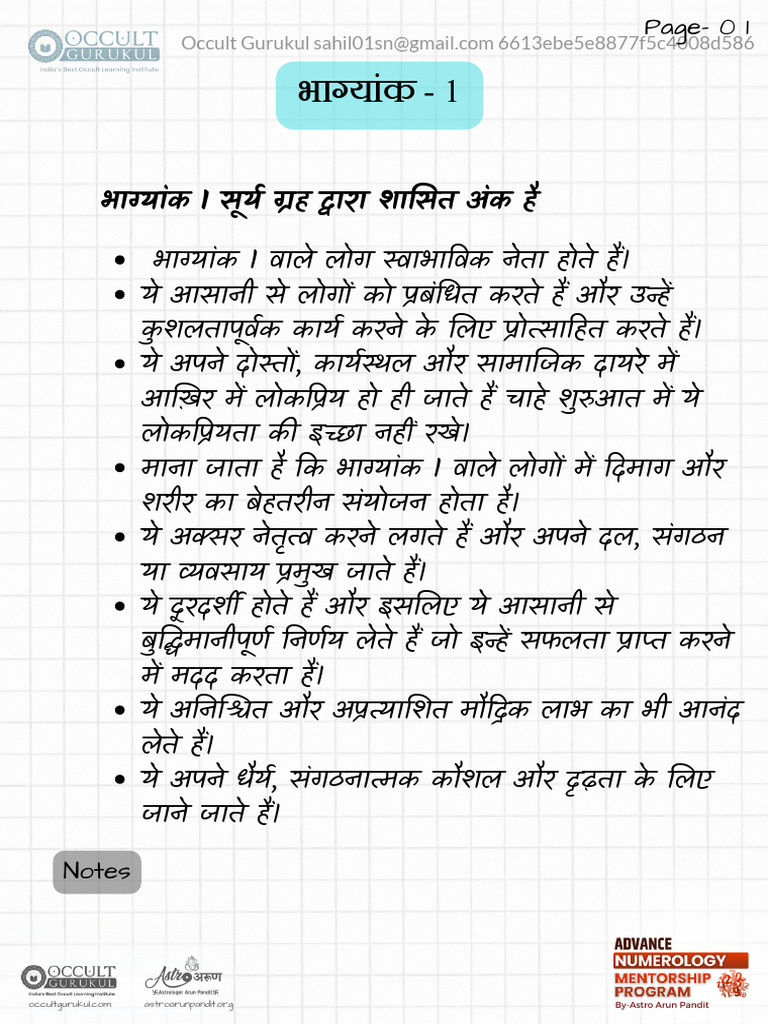 Page- 01
OCCULT
GURUKUL
India's Best Occult Learning Institute
Occult Gurukul sahil01sn@gmail.com 6613ebe5e8877f5c4008d586
भाग्यांक - 1
भाग्यांक 1 सूर्य ग्रह द्वारा शासित अंक है
• भाग्यांक 1 वाले लोग स्वाभाविक नेता होते हैं।
• ये आसानी से लोगों को प्रबंधित करते हैं और उन्हें
कुशलतापूर्वक कार्य करने के लिए प्रोत्साहित करते हैं।
• ये अपने दोस्तों, कार्यस्थल और सामाजिक दायरे में
आख़िर में लोकप्रिय हो ही जाते हैं चाहे शुरुआत में ये
लोकप्रियता की इच्छा नहीं रखे।
• माना जाता है कि भाग्यांक 1 वाले लोगों में दिमाग और
शरीर का बेहतरीन संयोजन होता है।
• ये अक्सर नेतृत्व करने लगते हैं और अपने दल, संगठन
या व्यवसाय प्रमुख जाते हैं।
• ये दूरदर्शी होते हैं और इसलिए ये आसानी से
बुद्धिमानीपूर्ण निर्णय लेते हैं जो इन्हें सफलता प्राप्त करने
में मदद करता हैं।
• ये अनिश्चित और अप्रत्याशित मौद्रिक लाभ का भी आनंद
लेते हैं।
• ये अपने धैर्य, संगठनात्मक कौशल और दृढ़ता के लिए
जाने जाते हैं।
Notes
OCCULT
GURUKUL
India's Best Occult Learning Institute
occultgurukul.com
Astro अरूण
Astrologer Arun Pandit
astroarunpandit.org
ADVANCE
NUMEROLOGY
MENTORSHIP
PROGRAM
By-Astro Arun Pandit